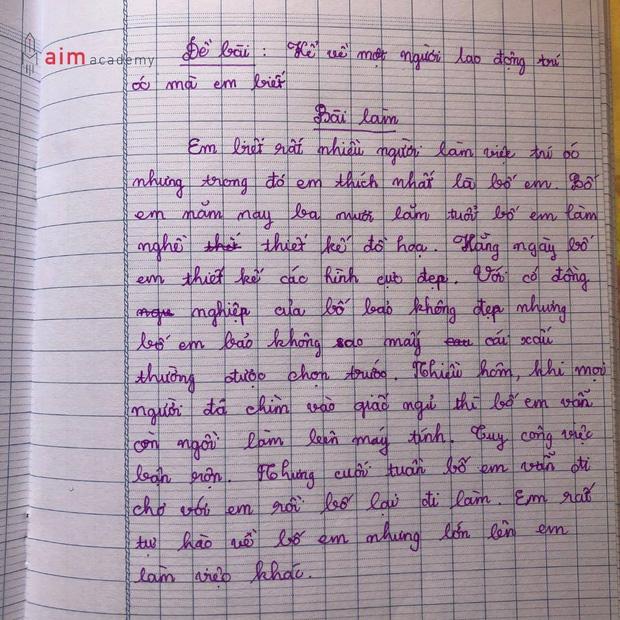 aim academy
Đề bài : Kể về một người lao động trí
óc mà em biết
Bài làm
Em biết rất nhiều người làm việc trí óc
nhưng trong đó em thích nhất là bố em. Bố
em năm nay ba mươi lăm tuổi bố em làm
nghề thiết kế đồ họa. Hằng ngày bố
em thiết kế các hình cực đẹp. Với cô đồng
nghiệp của bố bảo không đẹp nhưng
bố em bảo không sao mấy cái xấu
thường được chọn trước. Nhiều hôm, khi mọi
người đã chìm vào giấc ngủ thì bố em vẫn
còn ngồi làm bên máy tính. Tuy công việc
bận rộn. Nhưng cuối tuần bố em vẫn đi
chơ với em rồi bố lại đi làm. Em rất
tự hào về bố em nhưng lớn lên em
làm việc khác.